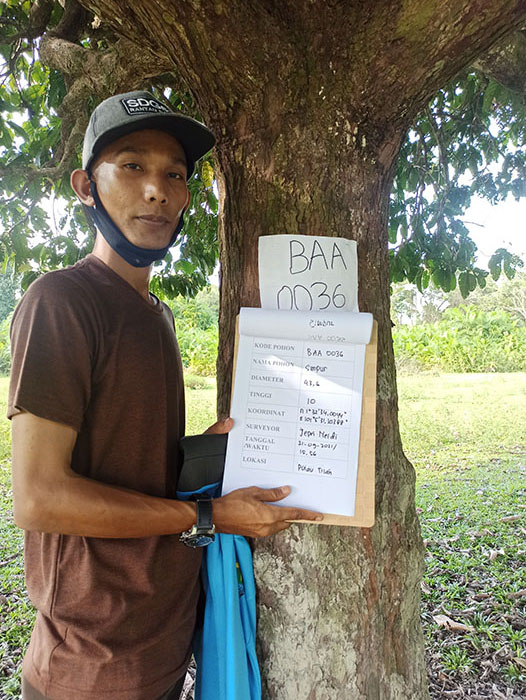 SDGs
BAA
0036
KODE POHON BAA 0036
NAMA POHON Simpur
DIAMETER 43,6
TINGGI 10
KOORDINAT
SURVEYOR Jepri Meldi
TANGGAL 21-09-2021/
/WAKTU 10.56
LOKASI Pulau